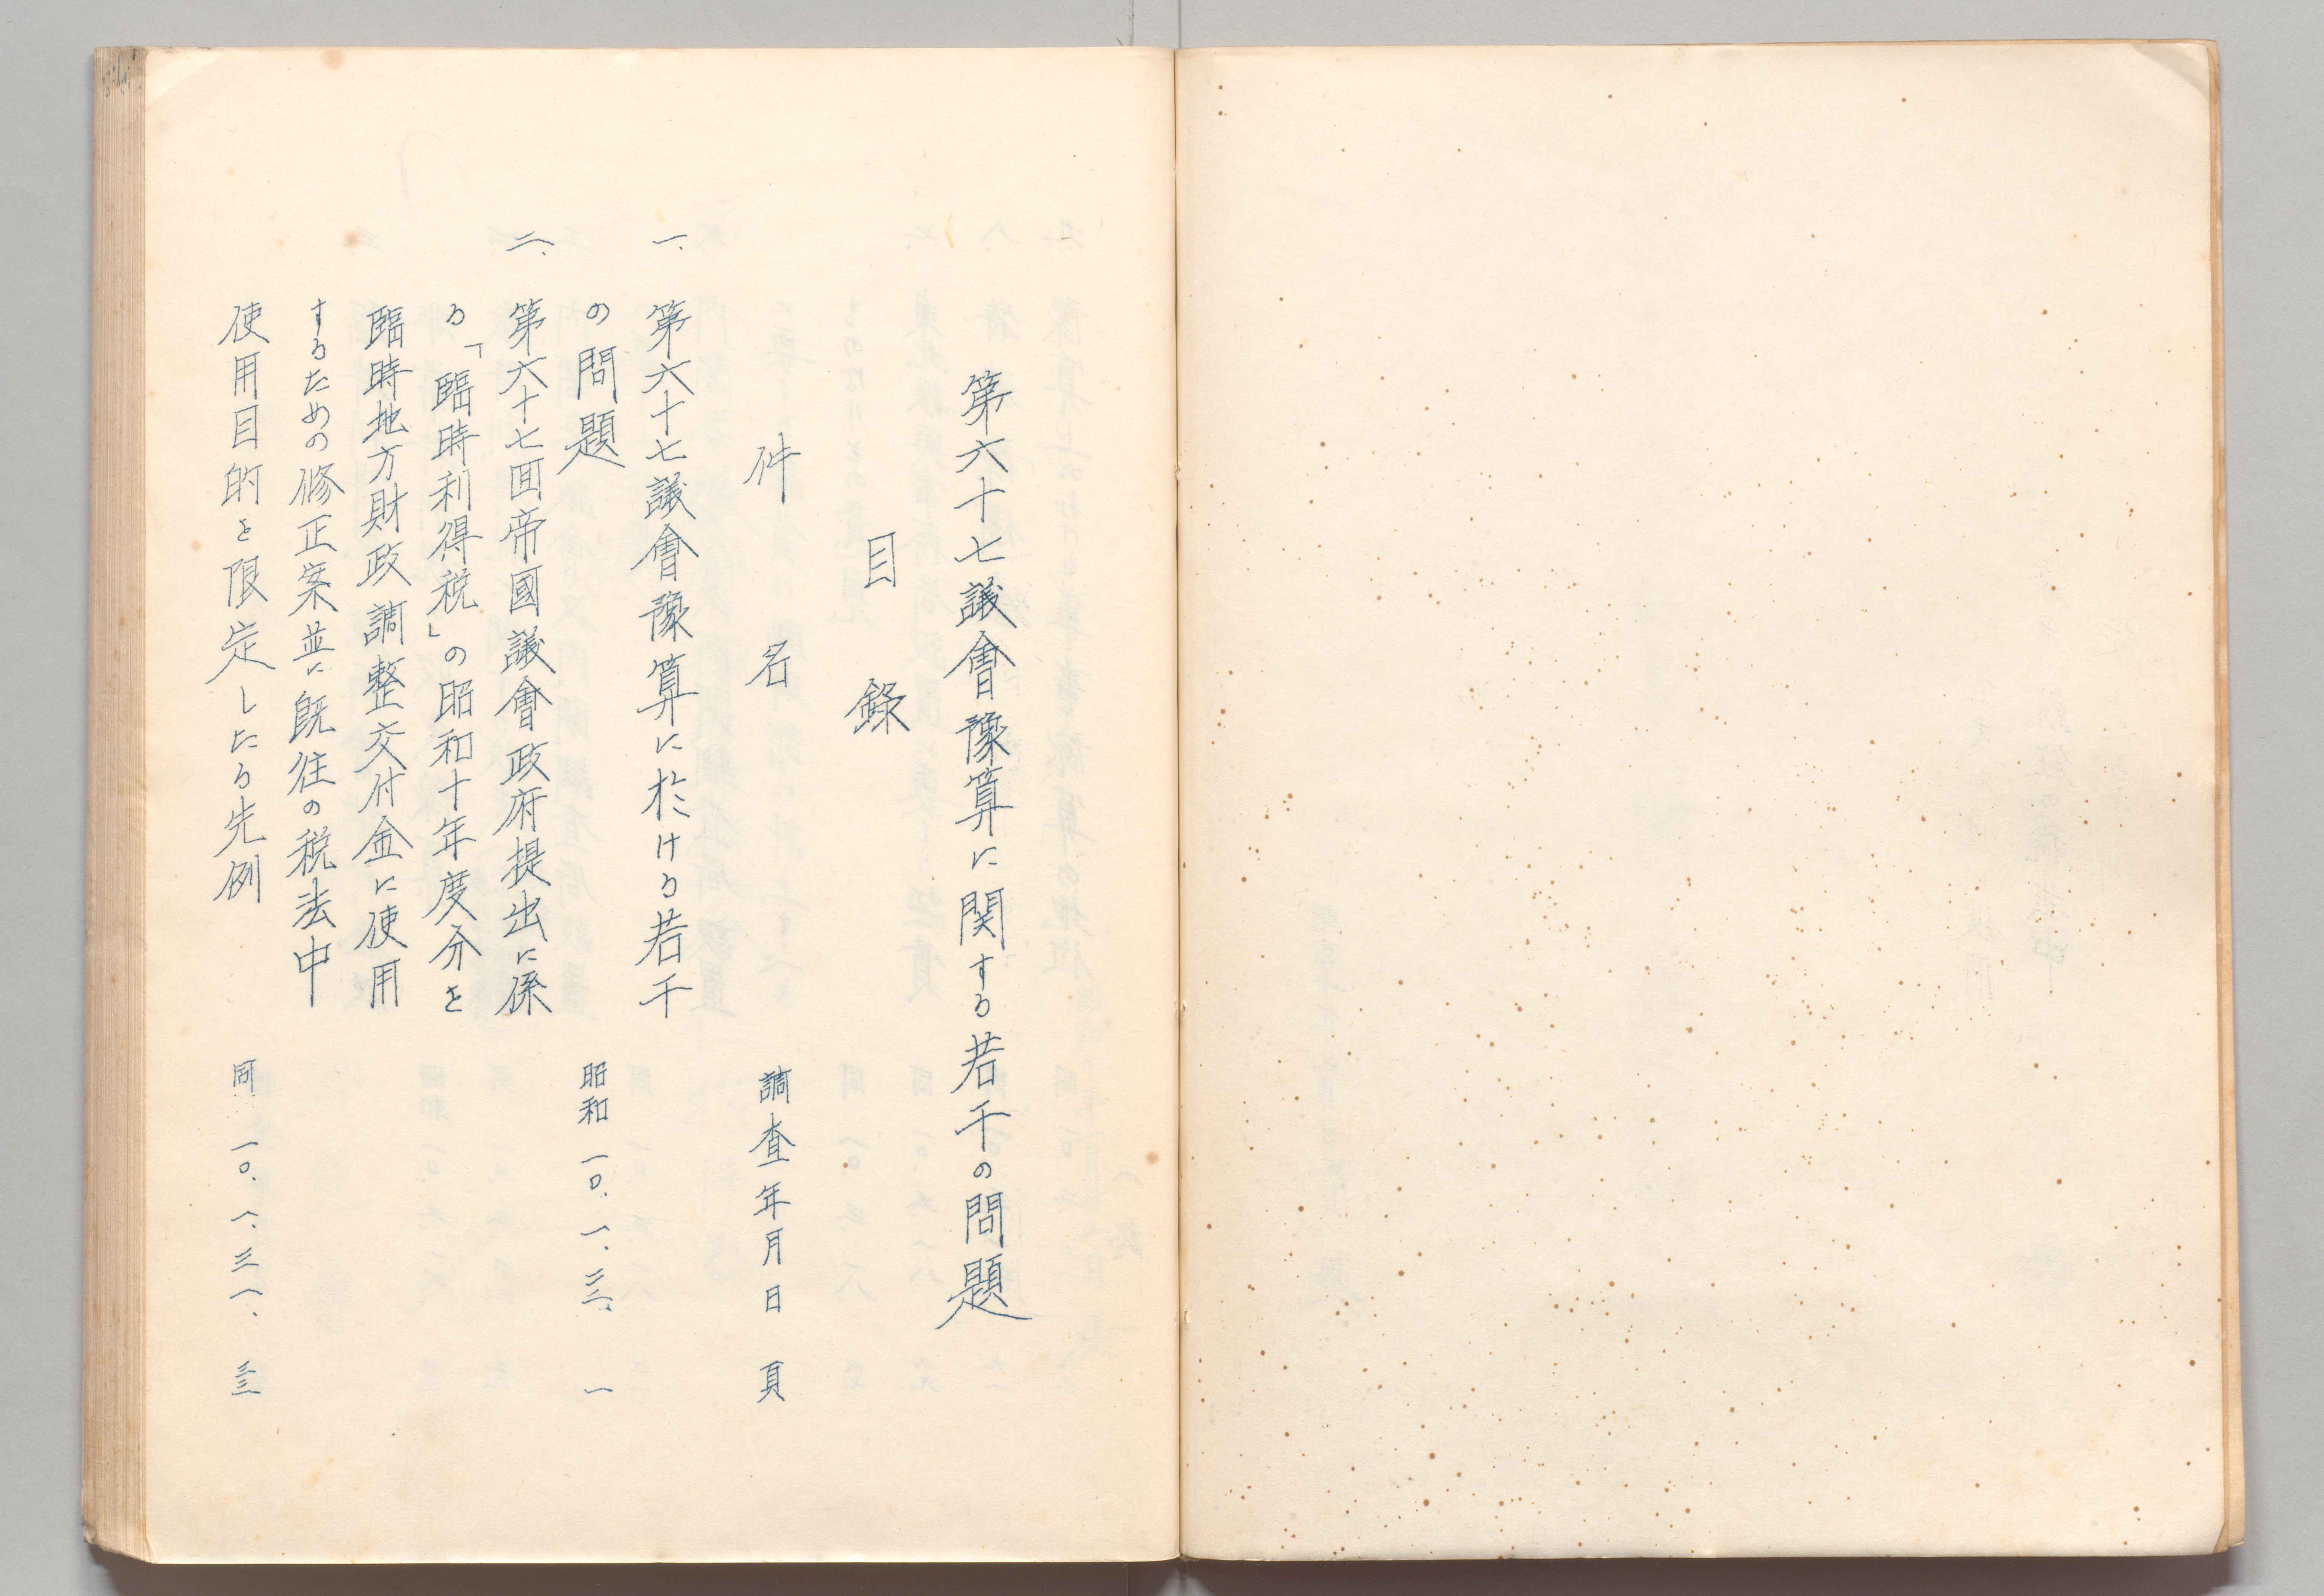 第六十七議會豫算に関する若干の問題
目錄
件名 調査年月日 頁
一、第六十七議會豫算に於ける若干
の問題 昭和一〇、一、三一、 一
二、第六十七囬帝國議會政府提出に係
る「臨時利得税」の昭和十年度分を
臨時地方財政調整交付金に使用
するための修正案並に既往の税法中
使用目的を限定したる先例 同 一〇、一、三一、